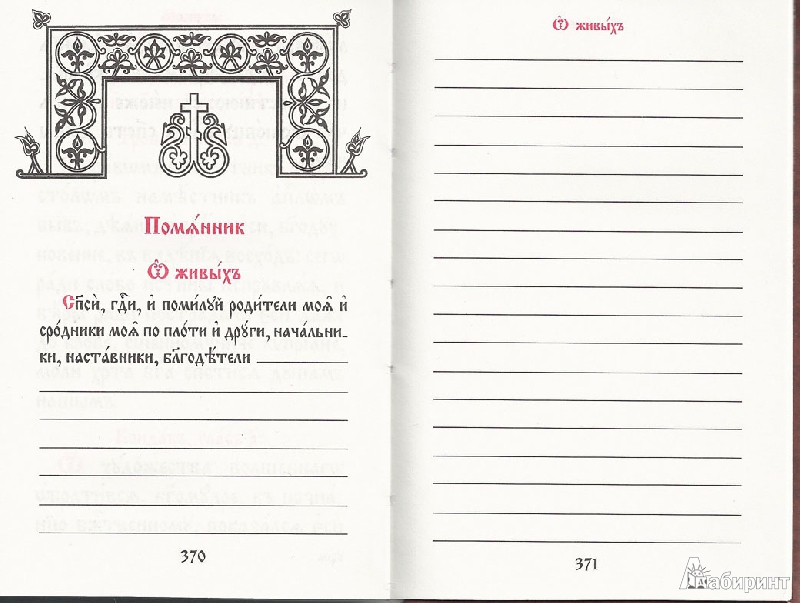 Помѧ́нник
Ѽ живы́хъ
Сп҃си́, гдⷭ҇и, и҆ поми́лꙋй роди́тели моѧ̑ и҆
срⷪ҇дники моѧ̑ по пло́ти и҆ дрꙋ́ги, нача́льни-
ки, наста́вники, благодѣ́тели
370
Ѽ живы́хъ
371
Лабиринт